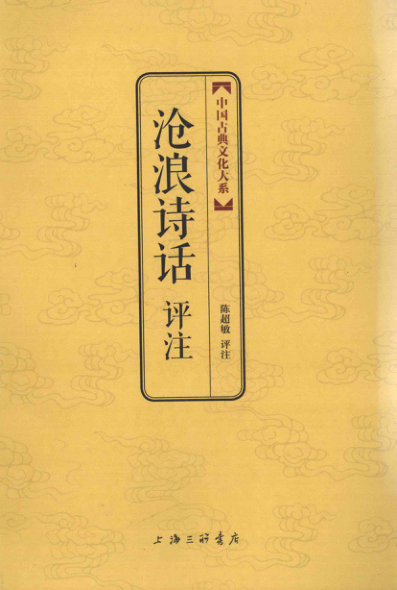 中国古典文化大系
沧浪诗话 评注
陈超敏 评注
上海三联书店